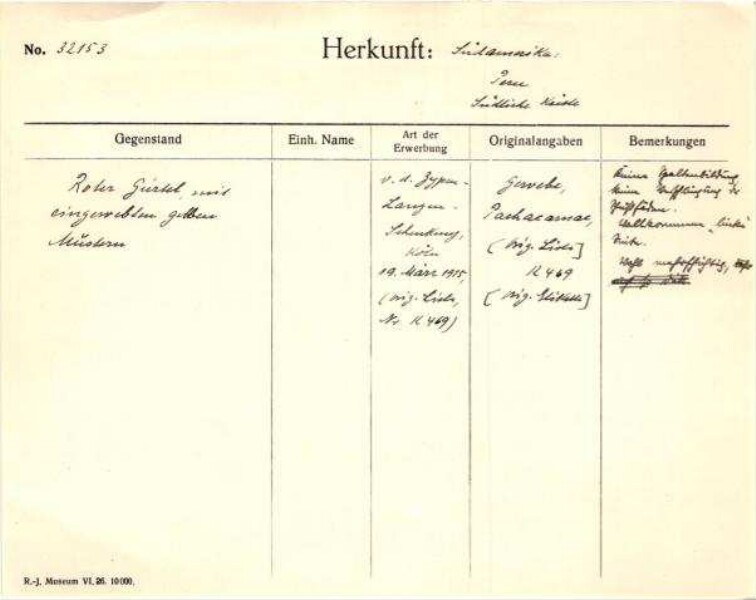 No. 32153
Herkunft: Südamerika.
Peru
Südliche Küste
Gegenstand
Einh. Name
Art der Erwerbung
Originalangaben
Bemerkungen
Roter Gürtel, mit
eingewebten gelben
Mustern
v. d. Zypen-
Langen-
Schenkung,
Köln
19. März 1915,
(Orig. Liste,
Nr. K 469)
Gewebe,
Pachacamac,
(Orig. Liste)
K 469
[Orig. Etikette]
Keine Spaltenbildung,
keine Verschlingung der
Schußfäden.
Vollkommen "linke"
Seite.
Wohl mehrschichtig,
R.-J. Museum VI. 26. 10000.